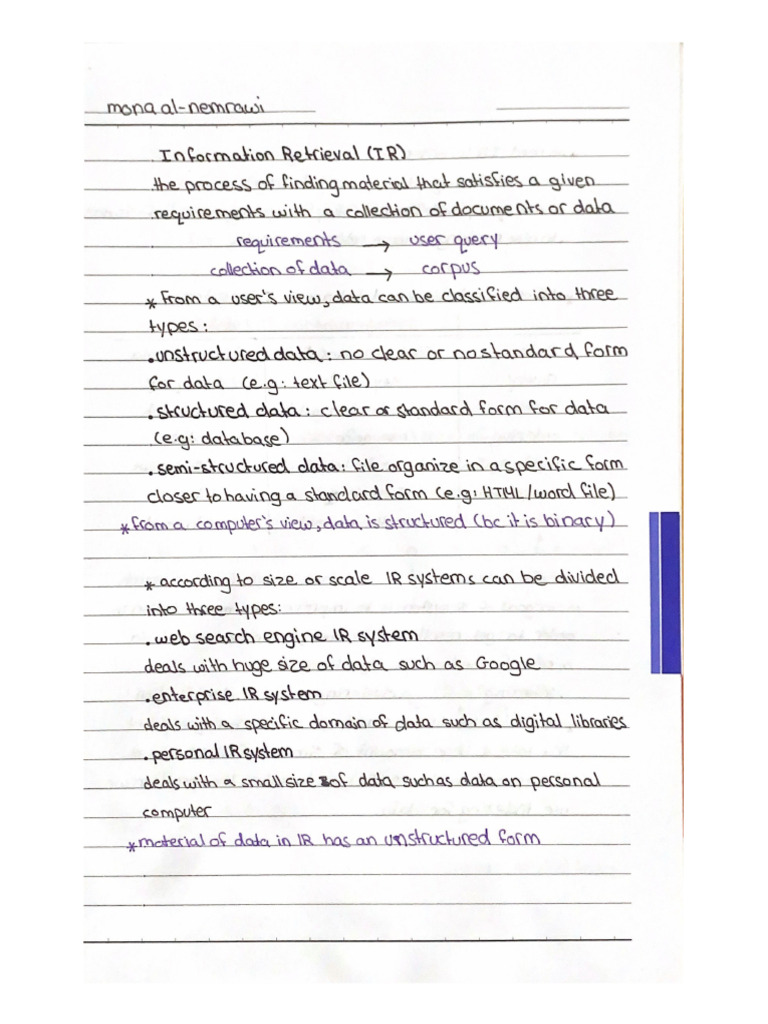 mona al-nemrawi
.Information Retrieval (IR)
the process of finding material that satisfies a given
requirements with a collection of documents or data
requirements → user query
collection of data → corpus
* from a user's view, data can be classified into three
types:
.unstructured data: no clear or no standard form
for data (e.g: text file)
.structured data: clear or standard form for data
(e.g: database)
.semi-structured data: file organize in a specific form
closer to having a standard form (e.g: HTML/word file)
*from a computer's view, data is structured (bc it is binary)
* according to size or scale IR systems can be divided
into three types:
.web search engine IR system
deals with huge size of data such as Google
.enterprise IR system
deals with a specific domain of data such as digital libraries
.personal IR system
deals with a small size of data such as data on personal
computer
*material of data in IR has an unstructured form